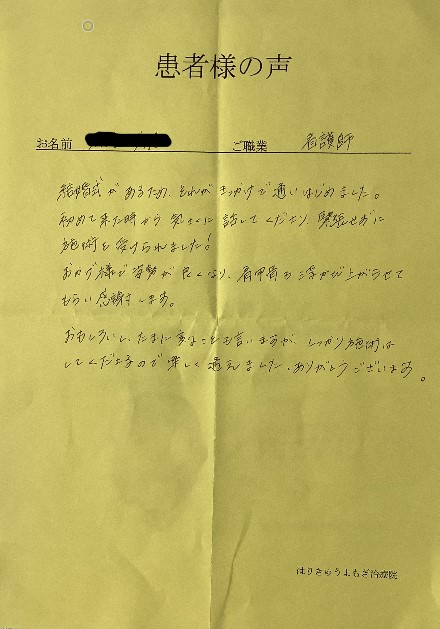 患者様の声
お名前 ご職業 看護師
結婚式があるため、それがきっかけで通いはじめました。
初めて来た時から気さくに話してくださり、緊張せずに
施術を受けられました!
おかげ様で姿勢が良くなり、肩甲骨も浮かび上がらせて
もらい感謝します。
おもしろいし、たまに変なことも言いますが、しっかり施術は
してくださるので楽しく通えました。ありがとうございます。
はりきゅうよもぎ治療院